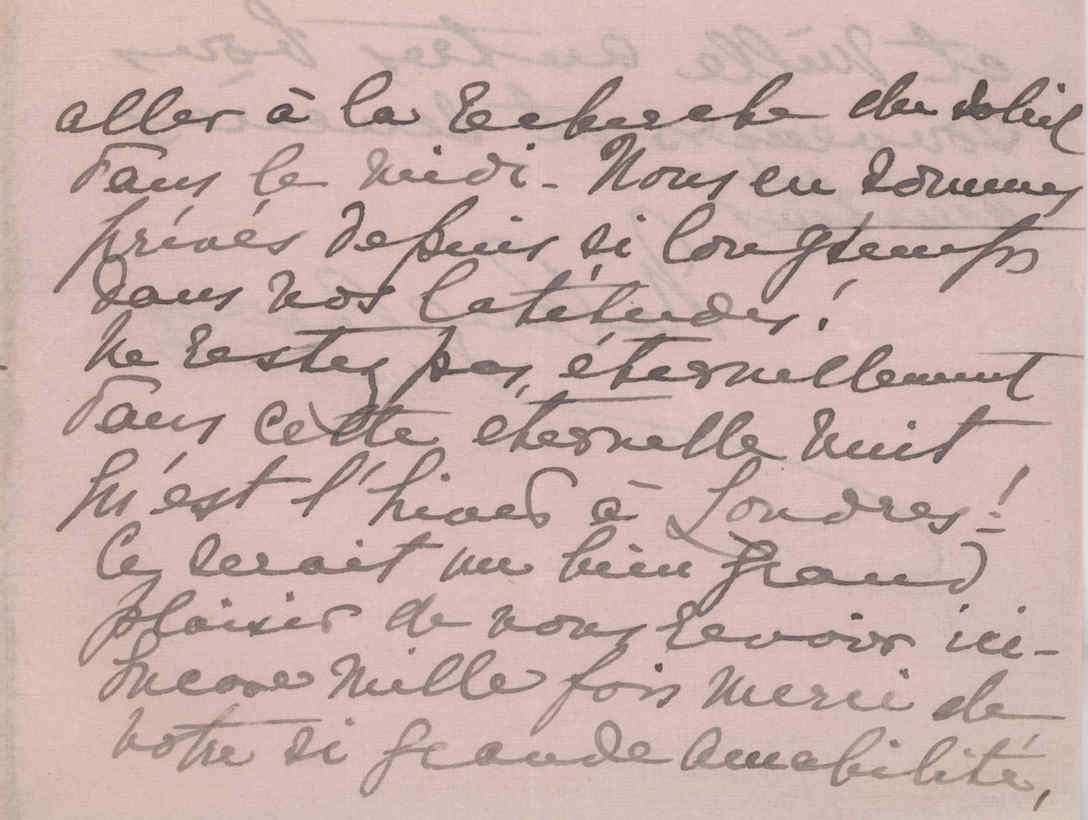 aller à la recherche du soleil
dans le midi - Nous en sommes
privés depuis si longtemps
dans nos latitudes !
Ne restez pas éternellement
dans cette éternelle nuit
qu'est l'hiver à Londres !
Ce serait un bien grand
plaisir de vous revoir ici -
Encore mille fois merci de
votre si grande amabilité,